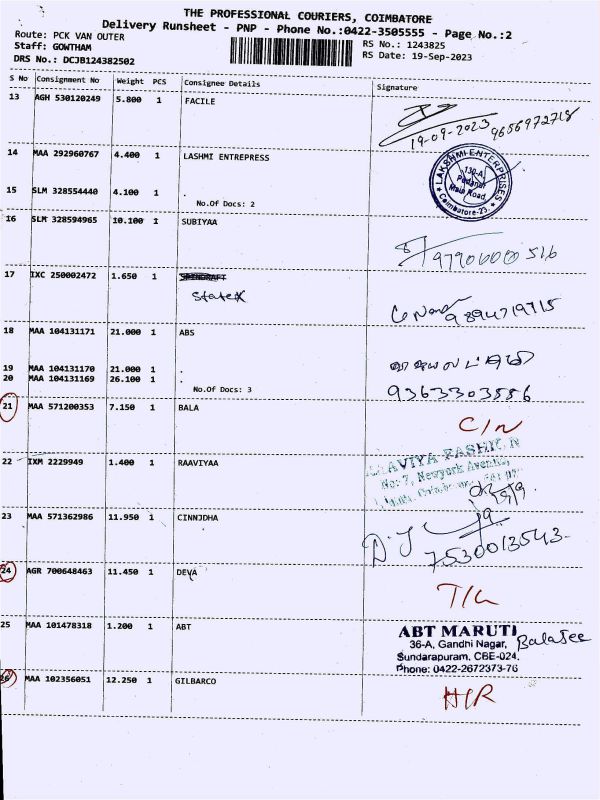 THE PROFESSIONAL COURIERS, COIMBATORE
Delivery Runsheet - PNP - Phone No.:0422-3505555 - Page No.:2
Route: PCK VAN OUTER
RS No.: 1243825
Staff: GOWTHAM
RS Date: 19-Sep-2023
DRS No.: DCJB124382502
S No Consignment No Weight PCS Consignee Details Signature
13 AGH 530120249 5.800 1 FACILE
19-09-2023 9656972718
14 MAA 292960767 4.400 1 LASHMI ENTREPRESS
LAKSHMI ENTERPRISES
130-A,
Pedanur
Main Road,
Coimbatore-23.
15 SLM 328554440 4.100 1 .
No.Of Docs: 2
16 SLM 328594965 10.100 1 SUBIYAA
9790600516
17 IXC 250002472 1.650 1
9894719715
18 MAA 104131171 21.000 1 ABS
19 MAA 104131170 21.000 1 .
20 MAA 104131169 26.100 1 .
No.Of Docs: 3
9363303586
21 MAA 571200353 7.150 1 BALA
C/N
22 IXM 2229949 1.400 1 RAAVIYAA
AAVIYA FASHION
No: 7, Newyork Avenue,
23 MAA 571362986 11.950 1 CINNJDHA
7530013543
24 AGR 700648463 11.450 1 DEVA
25 MAA 101478318 1.200 1 ABT
ABT MARUTI
36-A, Gandhi Nagar, Balajee
Sundarapuram, CBE-024.
Phone: 0422-2672373-76
26 MAA 102356051 12.250 1 GILBARCO
H/R